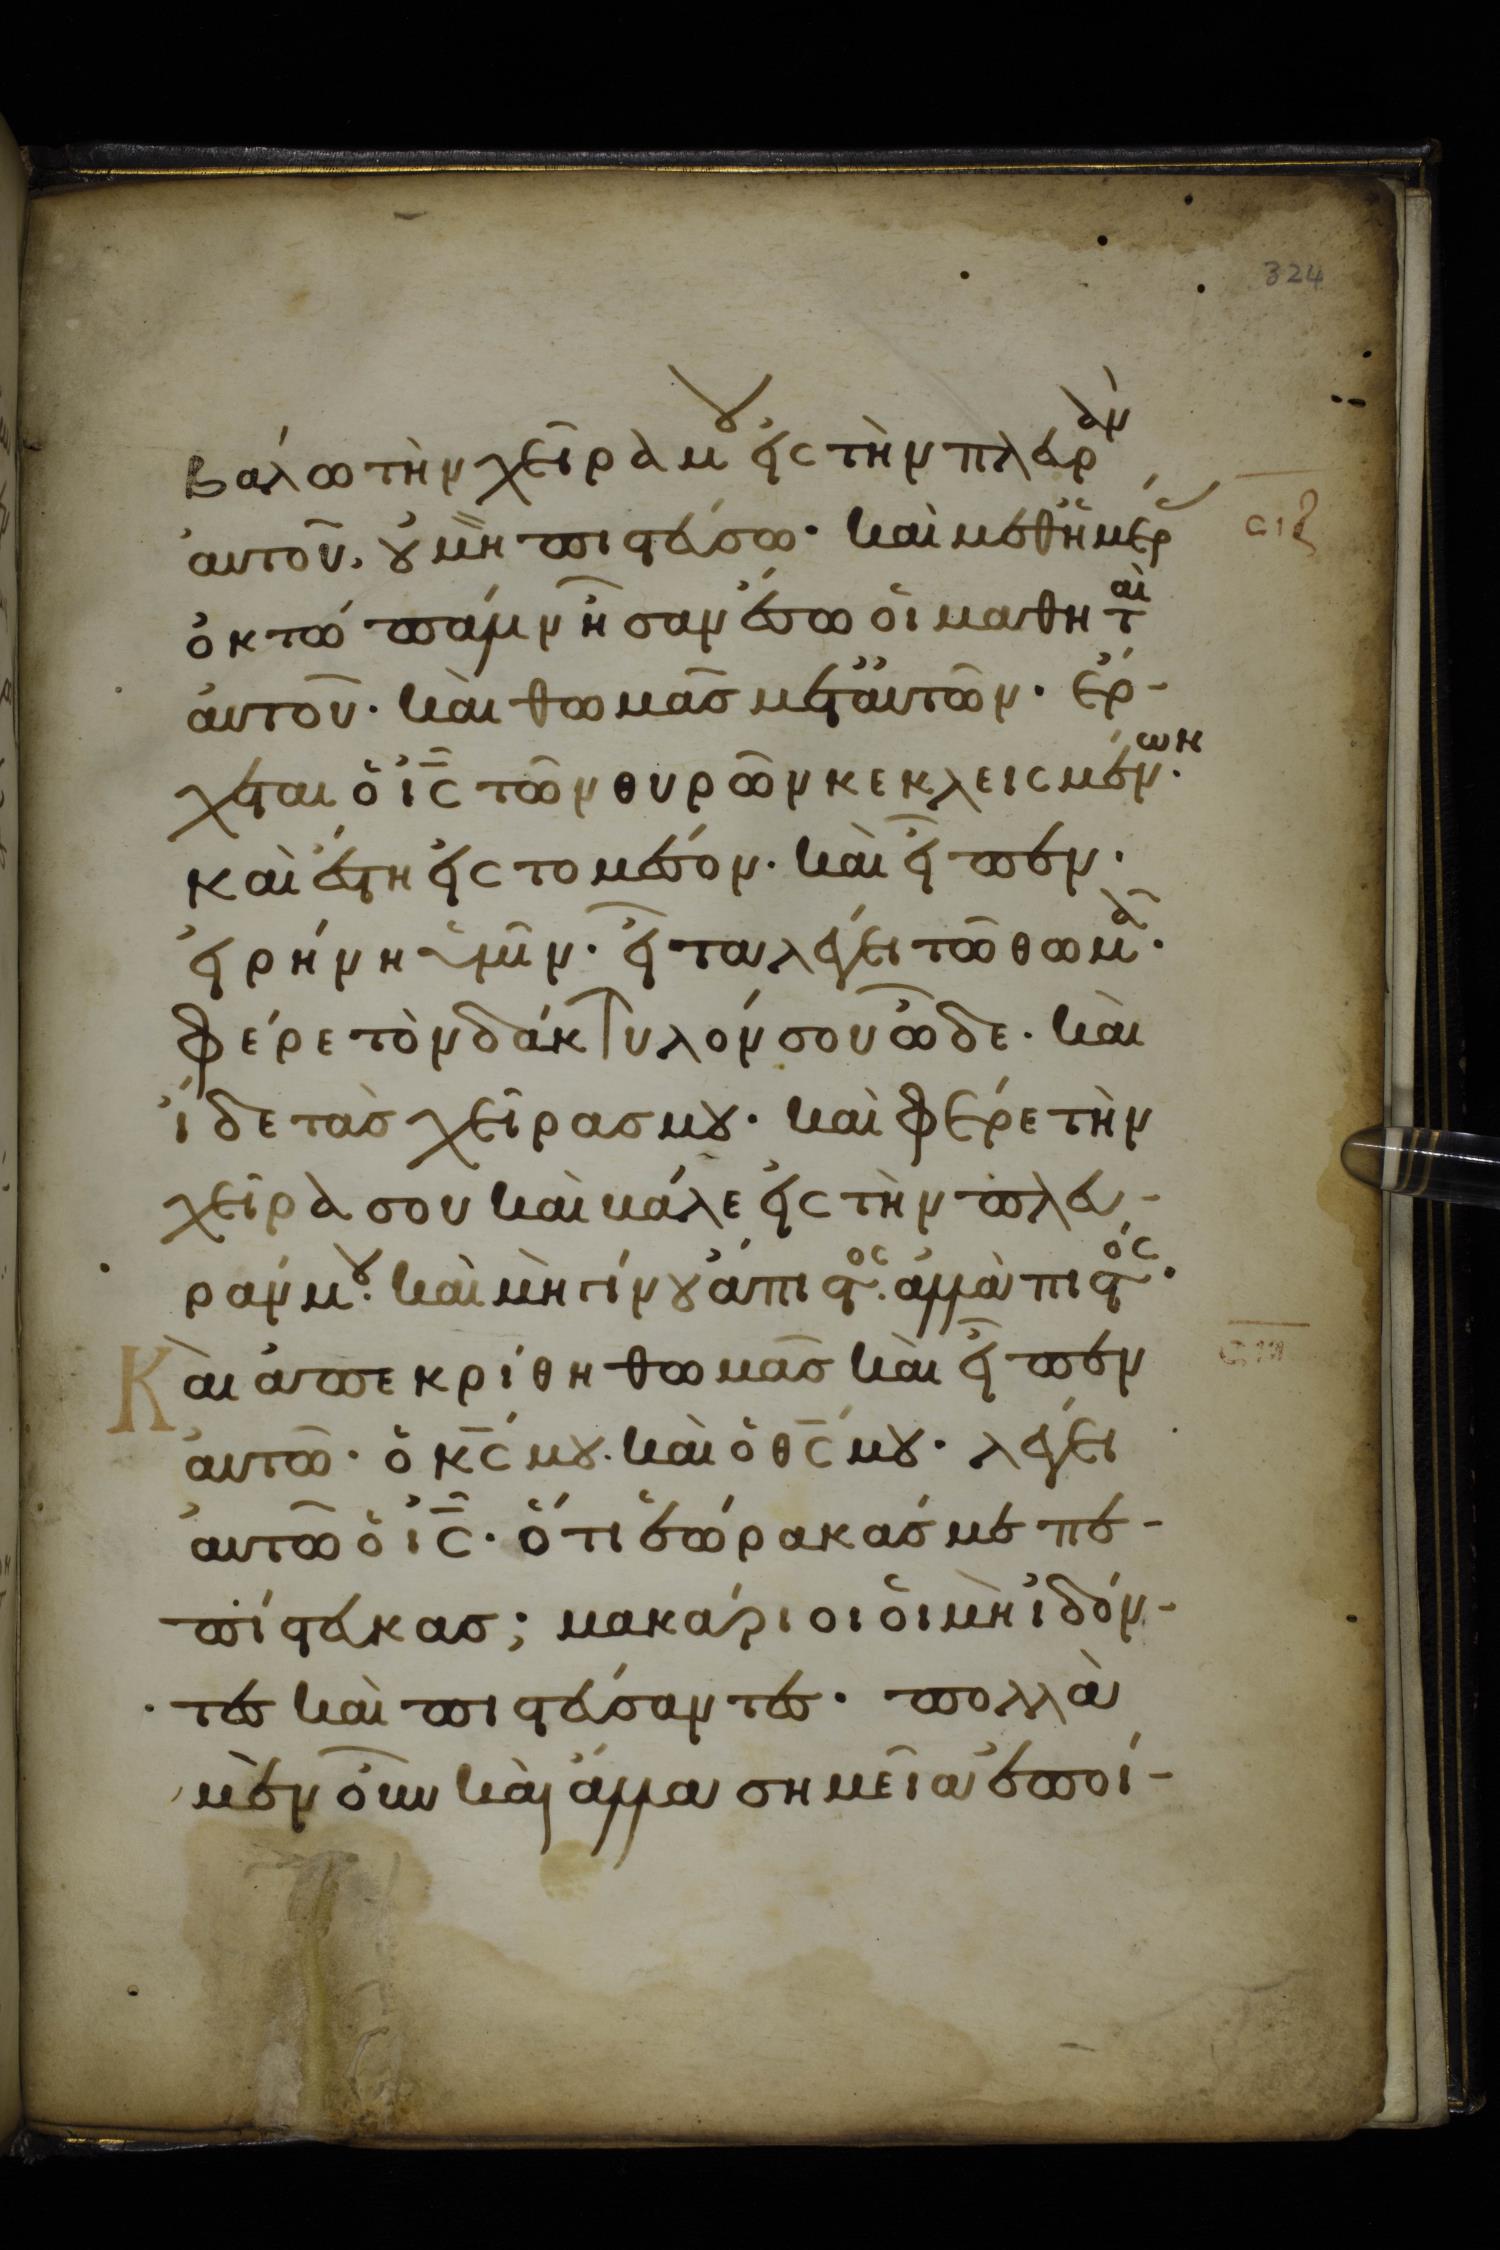 324
βάλω τὴν χεῖρὰ μου εἰς τὴν πλευρὰν
αὐτοῦ, οὐ μὴ πιστεύσω· καὶ μεθ' ἡμέρ
ὀκτὼ πάλιν ἦσαν ἔσω οἱ μαθηταὶ
αὐτοῦ· καὶ θωμᾶσ μετ' αὐτῶν· ἔρ-
χεται ὁ ἰ̅ς̅ τῶν θυρῶν κεκλεισμένων·
καὶ ἔστη εἰς το μέσον· καὶ εἶπεν·
εἰρήνη ὑμῖν· εἶτα λέγει τῶ θωμᾶ·
φέρε τὸν δάκτυλόν σου ὧδε· καὶ
ἴδε τὰσ χεῖρασ μου· καὶ φέρε τὴν
χεῖρὰ σου καὶ βάλε εἰς τὴν πλευ-
ράν μου· καὶ μὴ γίνου ἄπιστος· ἀλλὰ πιστός·
Καὶ ἀπεκρίθη θωμᾶσ καὶ εἶπεν
αὐτῶ· ὁ κ̅ς̅ μου· καὶ ὁ θ̅ς̅ μου· λέγει
αὐτῶ ὁ ἰ̅ς̅· ὅτι ἑώρακάσ με πε-
πίστευκασ; μακάριοι οἱ μὴ ἰδόν-
τεσ καὶ πιστεύσαντεσ· πολλὰ
μὲν οὖν καὶ ἄλλα σημεῖα ἐποί-
σιζ
σιη